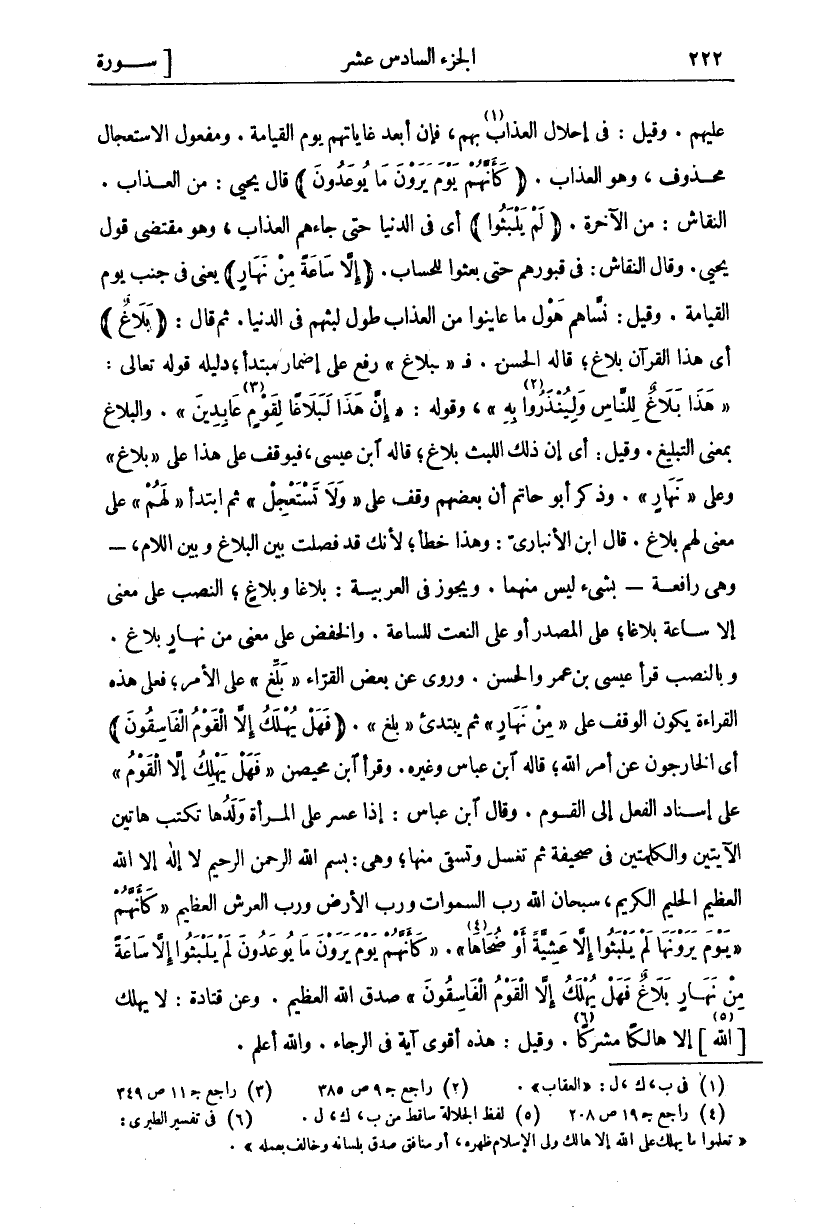 ٢٢٢ الجزء السادس عشر [ ســـورة
عليهم . وقيل : فى إحلال العذاب(١) بهم، فإن أبعد غاياتهم يوم القيامة . ومفعول الاستعجال
محـذوف ، وهو العذاب . ﴿ كَأَنَّهُمْ يَوْمَ يَرَوْنَ مَا يُوعَدُونَ ﴾ قال يحيى : من العـذاب .
النقاش : من الآخرة . ﴿ لَمْ يَلْبَثُوا ﴾ أى فى الدنيا حتى جاءهم العذاب ، وهو مقتضى قول
يحيى . وقال النقاش : فى قبورهم حتى بعثوا للحساب . ﴿ إِلَّا سَاعَةً مِنْ نَهَارٍ ﴾ يعنى فى جنب يوم
القيامة . وقيل : نسّاهم هَوْل ما عاينوا من العذاب طول لبثهم فى الدنيا . ثم قال : ﴿ بَلَاغٌ ﴾
أى هذا القرآن بلاغ؛ قاله الحسن . فـ « ـبلاغ » رفع على إضمار مبتدأ ؛ دليله قوله تعالى :
« هَذَا بَلَاغٌ لِلنَّاسِ وَلِيُنْذَرُوا بِهِ(٢) » ، وقوله : « إِنَّ هَذَا لَبَلَاغًا لِقَوْمٍ(٣) عَابِدِينَ » . والبلاغ
بمعنى التبليغ . وقيل : أى إن ذلك اللبث بلاغ؛ قاله ٱبن عيسى ، فيوقف على هذا على « بلاغ »
وعلى « نَهَارٍ » . وذكر أبو حاتم أن بعضهم وقف على « وَلَا تَسْتَعْجِلْ » ثم ابتدأ « لَهُمْ » على
معنى لهم بلاغ . قال ابن الأنبارىّ : وهذا خطأ؛ لأنك قد فصلت بين البلاغ وبين اللام، —
وهى رافعـة — بشىء ليس منهما . ويجوز فى العربيـة : بلاغا وبلاغٍ ؛ النصب على معنى
إلا سـاعة بلاغا؛ على المصدر أو على النعت للساعة . والخفض على معنى من نهـارٍ بلاغ .
وبالنصب قرأ عيسى بن عمر والحسن . وروى عن بعض القرّاء « بَلِّغ » على الأمر؛ فعلى هذه
القراءة يكون الوقف على « مِنْ نَهَارٍ » ثم يبتدئ « بلغ » . ﴿ فَهَلْ يُهْلَكُ إِلَّا الْقَوْمُ الْفَاسِقُونَ ﴾
أى الخارجون عن أمر الله؛ قاله ابن عباس وغيره . وقرأ ٱبن محيصن « فَهَلْ يَهْلِكُ إِلَّا الْقَوْمُ »
على إسـناد الفعل إلى القـوم . وقال ٱبن عباس : إذا عسر على المـرأة وَلَدُها تكتب هاتين
الآيتين والكلمتين فى صحيفة ثم تغسل وتسقى منها؛ وهى : بسم الله الرحمن الرحيم لا إله إلا الله
العظيم الحليم الكريم، سبحان الله رب السموات ورب الأرض ورب العرش العظيم « كَأَنَّهُمْ
« يَـوْمَ يَرَوْنَهَا لَمْ يَلْبَثُوا إِلَّا عَشِيَّةً أَوْ ضُحَاهَا(٤) » . « كَأَنَّهُمْ يَوْمَ يَرَوْنَ مَا يُوعَدُونَ لَمْ يَلْبَثُوا إِلَّا سَاعَةً
مِنْ نَهَـارٍ بَلَاغٌ فَهَلْ يُهْلَكُ إِلَّا الْقَوْمُ الْفَاسِقُونَ » صدق الله العظيم . وعن قتادة : لا يهلك
[ الله(٥) ] إلا هالكًا مشركًا(٦) . وقيل : هذه أقوى آية فى الرجاء . والله أعلم .
(١) فى ب ، ك ، ل : « العقاب » . (٢) راجع جـ ٩ ص ٣٨٥ (٣) راجع جـ ١١ ص ٣٤٩
(٤) راجع جـ ١٩ ص ٢٠٨ (٥) لفظ الجلالة ساقط من ب ، ك ، ل . (٦) فى تفسير الطبرى :
« تعلموا ما يهلك على الله إلا هالك ولى الإسلام ظهره ، أو منافق صدق بلسانه وخالف بعمله » .